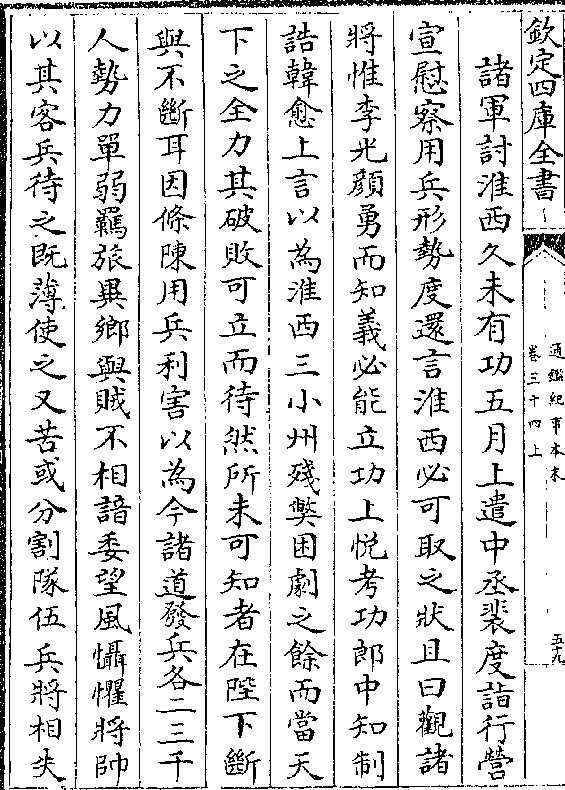 欽定四庫全書
通鑑紀事本末
卷三十四上
五九
諸軍討淮西久未有功五月上遣中丞裴度詣行營
宣慰察用兵形勢度還言淮西必可取之狀且曰觀諸
將惟李光顔勇而知義必能立功上悦考功郎中知制
誥韓愈上言以為淮西三小州殘弊困劇之餘而當天
下之全力其破敗可立而待然所未可知者在陛下斷
與不斷耳因條陳用兵利害以為今諸道發兵各二三千
人勢力單弱羈旅異鄉與賊不相諳委望風懾懼將帥
以其客兵待之既薄使之又苦或分割隊伍兵將相失